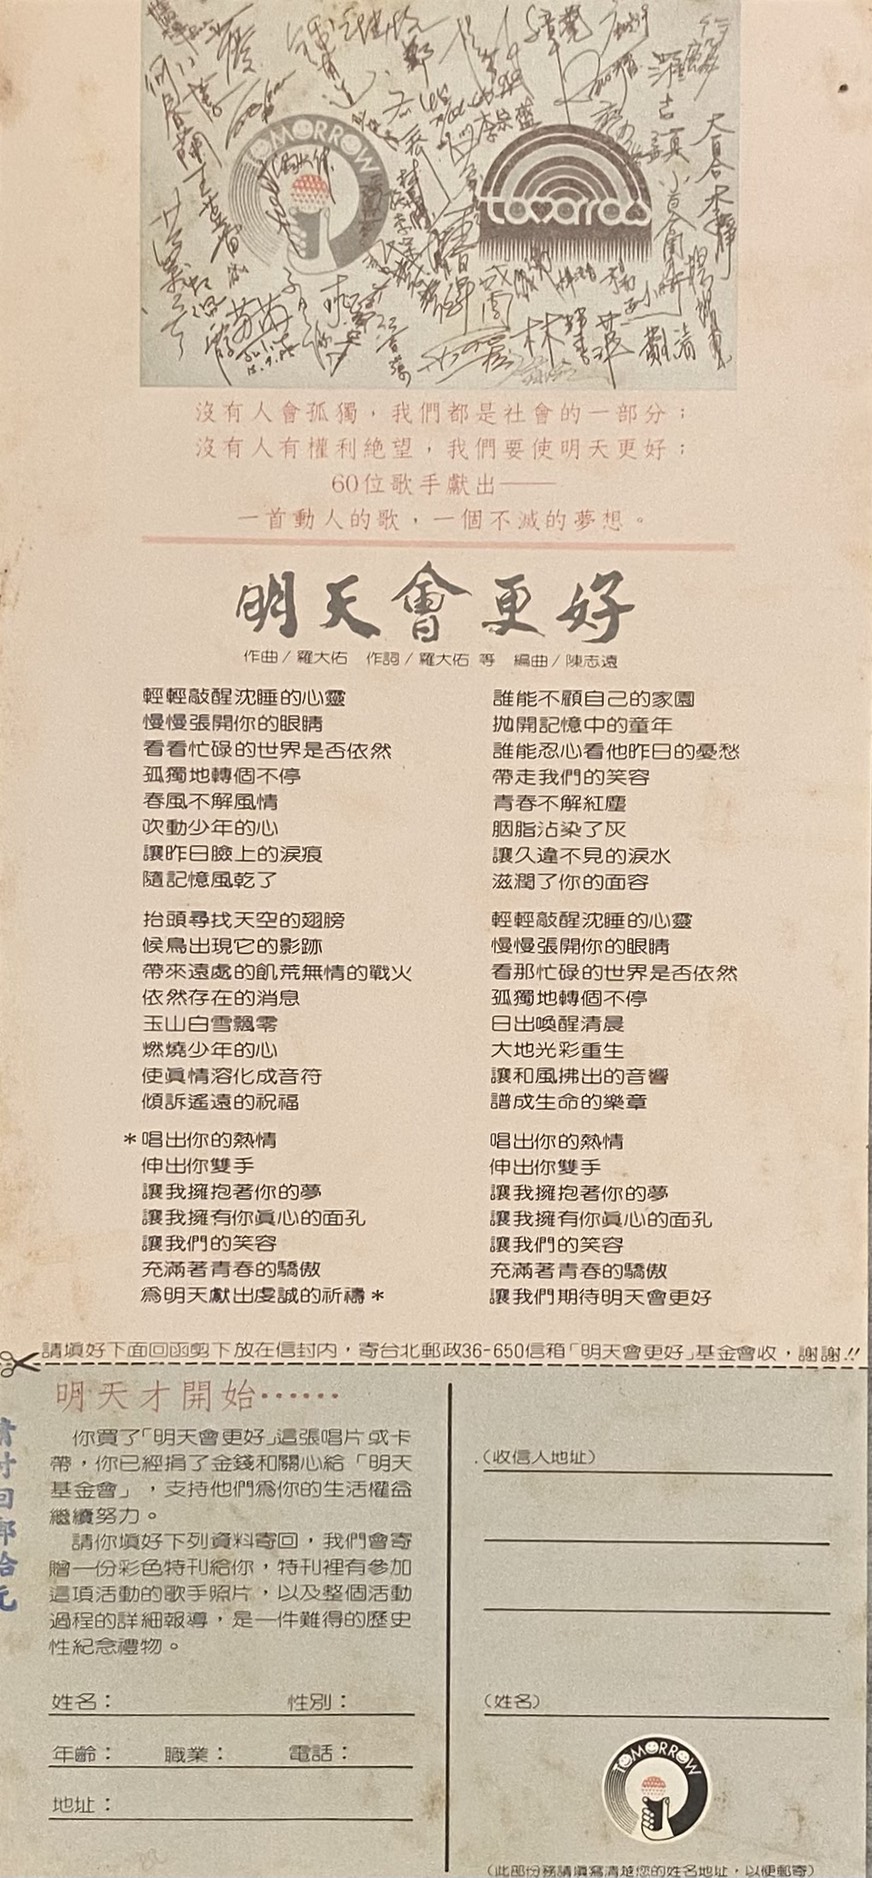 TOMORROW
towards
李宗盛
沒有人會孤獨，我們都是社會的一部分；
沒有人有權利絕望，我們要使明天更好；
60位歌手獻出——
一首動人的歌，一個不滅的夢想。
明天會更好
作曲/羅大佑 作詞/羅大佑 等 編曲/陳志遠
輕輕敲醒沈睡的心靈
慢慢張開你的眼睛
看看忙碌的世界是否依然
孤獨地轉個不停
春風不解風情
吹動少年的心
讓昨日臉上的淚痕
隨記憶風乾了
抬頭尋找天空的翅膀
候鳥出現它的影跡
帶來遠處的飢荒無情的戰火
依然存在的消息
玉山白雪飄零
燃燒少年的心
使眞情溶化成音符
傾訴遙遠的祝福
＊唱出你的熱情
伸出你雙手
讓我擁抱著你的夢
讓我擁有你眞心的面孔
讓我們的笑容
充滿著青春的驕傲
爲明天獻出虔誠的祈禱＊
誰能不顧自己的家園
拋開記憶中的童年
誰能忍心看他昨日的憂愁
帶走我們的笑容
青春不解紅塵
胭脂沾染了灰
讓久違不見的淚水
滋潤了你的面容
輕輕敲醒沈睡的心靈
慢慢張開你的眼睛
看那忙碌的世界是否依然
孤獨地轉個不停
日出喚醒清晨
大地光彩重生
讓和風拂出的音響
譜成生命的樂章
唱出你的熱情
伸出你雙手
讓我擁抱著你的夢
讓我擁有你眞心的面孔
讓我們的笑容
充滿著青春的驕傲
讓我們期待明天會更好
請填好下面回函剪下放在信封內，寄台北郵政36-650信箱「明天會更好」基金會收，謝謝!!
明天才開始……
你買了「明天會更好」這張唱片或卡
帶，你已經捐了金錢和關心給「明天
基金會」，支持他們爲你的生活權益
繼續努力。
請你填好下列資料寄回，我們會寄
贈一份彩色特刊給你，特刊裡有參加
這項活動的歌手照片，以及整個活動
過程的詳細報導，是一件難得的歷史
性紀念禮物。
姓名： 性別：
年齡： 職業： 電話：
地址：
請付回郵拾元
（收信人地址）
（姓名）
TOMORROW
（此部份務請填寫清楚您的姓名地址，以便郵寄）